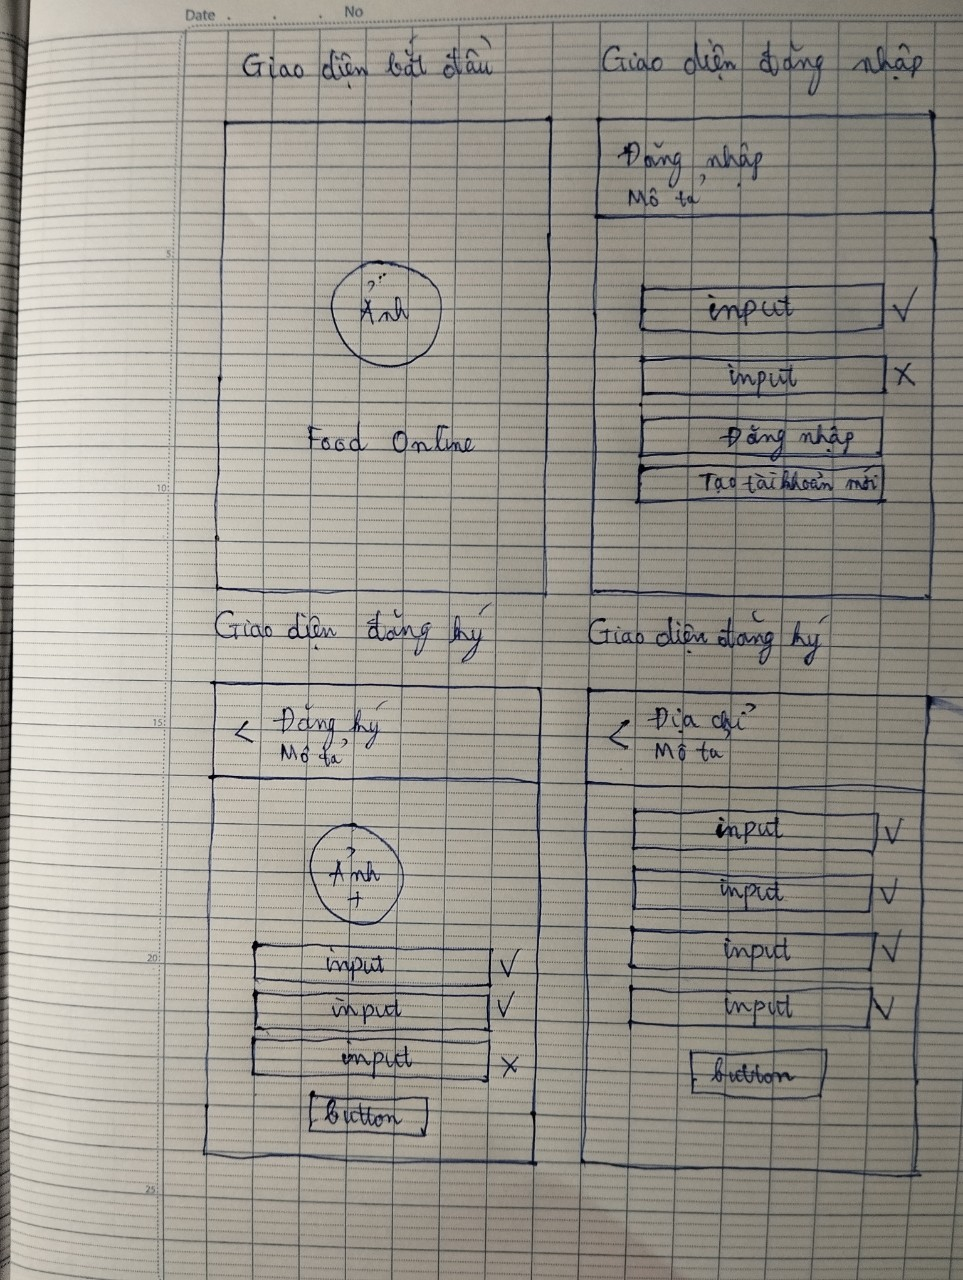 Date . . . No
Giao diện bắt đầu
Ảnh
Food Online
Giao diện đăng nhập
Đăng nhập
Mô tả
input √
input x
Đăng nhập
Tạo tài khoản mới
5
10
15
20
25
Giao diện đăng ký
< Đăng ký
Mô tả
Ảnh
+
input √
input √
input x
button
Giao diện đăng ký
< Địa chỉ
Mô tả
input √
input √
input √
input √
button